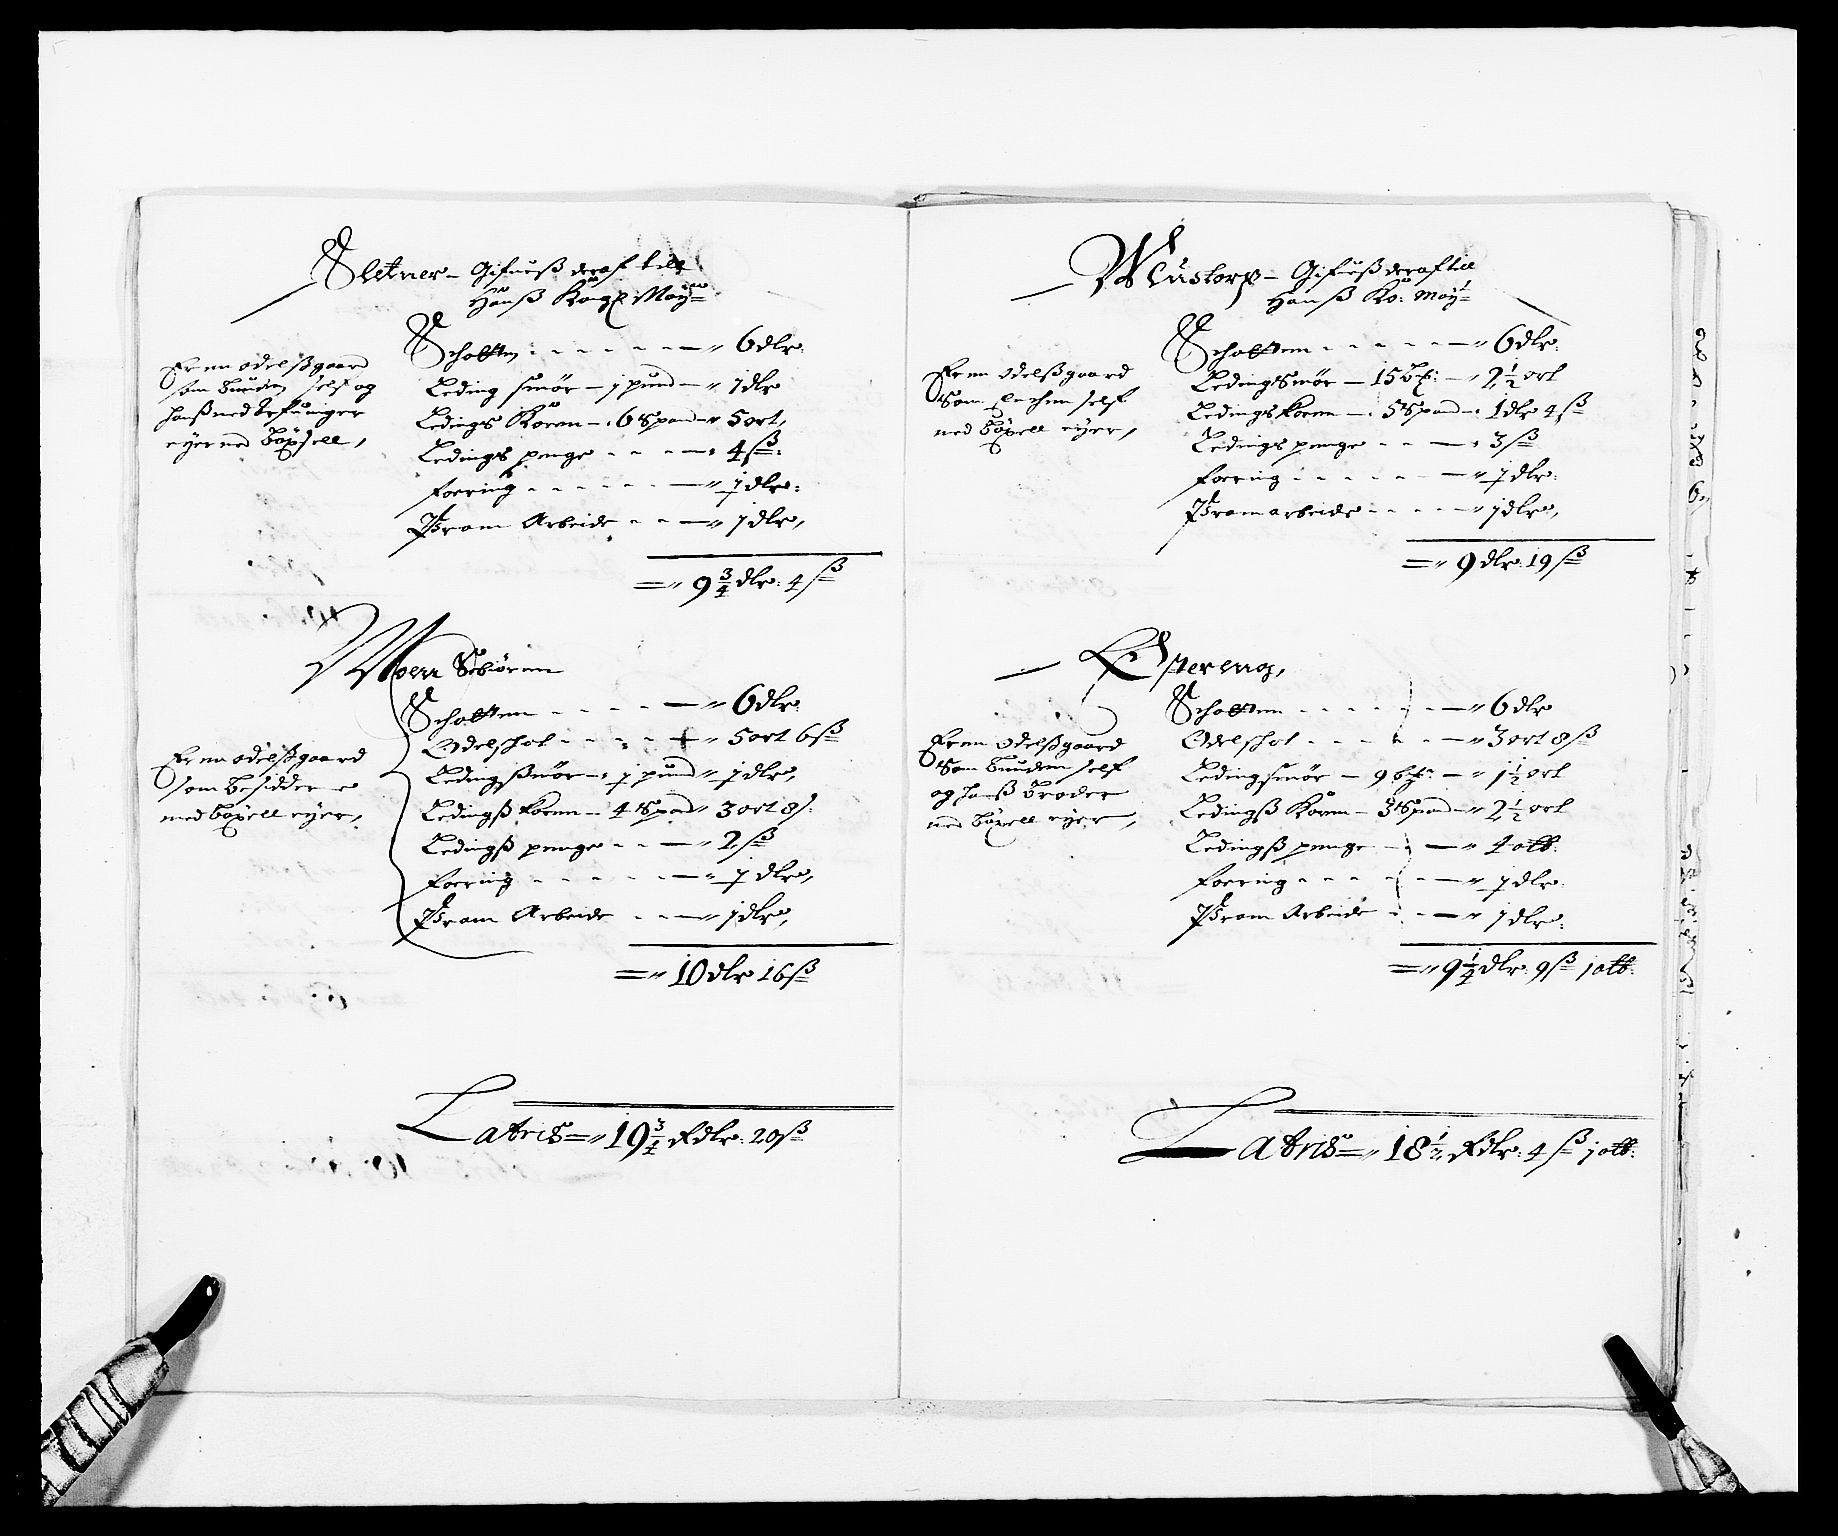 Sletner – Gifuß deraf till
Hanß Kongl: May:
Er en odelßgaard
som bunden self og
hanß medarfuinger
eyer med böxsell,
Schatten – 6 dlr:
Leding smör – 1 pund – 1 dlr
Ledings Korn – 6 Spand – 5 ort,
Ledings penge – 4 ß:
foering – 1 dlr:
Pram Arbeide – 1 dlr,
9 3/4 dlr: 4 ß
Moen Sebiören
Er en odelßgaard
som besidderne
med böxell eyer,
Schatten – 6 dlr
Odelschat – 5 ort 6 ß
Ledingßmör – 1 pund 1 dlr,
Ledingß korn – 4 Spand 3 ort 8 ß
Ledingß penge – 2 ß
foering – 1 dlr,
Pram Arbeide – 1 dlr,
10 dlr 16 ß
Lateris 19 3/4 Rdlr: 20 ß
Gifuß deraf till
Hanß Ko: May:
Er en odelßgaard
Som self
med böxell eyer,
Schatten – 6 dlr:
Ledingsmör – 15 – 2 1/2 ort
Ledings korn – 5 Spand – 1 dlr 4 ß
Ledings penge – 3 ß
foering – 1 dlr:
Pram arbeide – 1 dlr,
9 dlr: 19 ß
Östereng,
Er en odelßgaard
Som bunden self
og hanß Broder
med böxell eyer,
Schatten – 6 dlr
Odelschat – 3 ort 8 ß
Ledingsmör – 9 – 1 1/2 ort
Ledingß Korn – 3 Spand – 2 1/2 ort
Ledingß penge – 4 alb:
foering – 1 dlr:
Pram Arbeide – 1 dlr:
9 1/4 dlr: 9 ß 1 alb:
Lateris 18 1/2 Rdlr: 4 ß 1 alb: